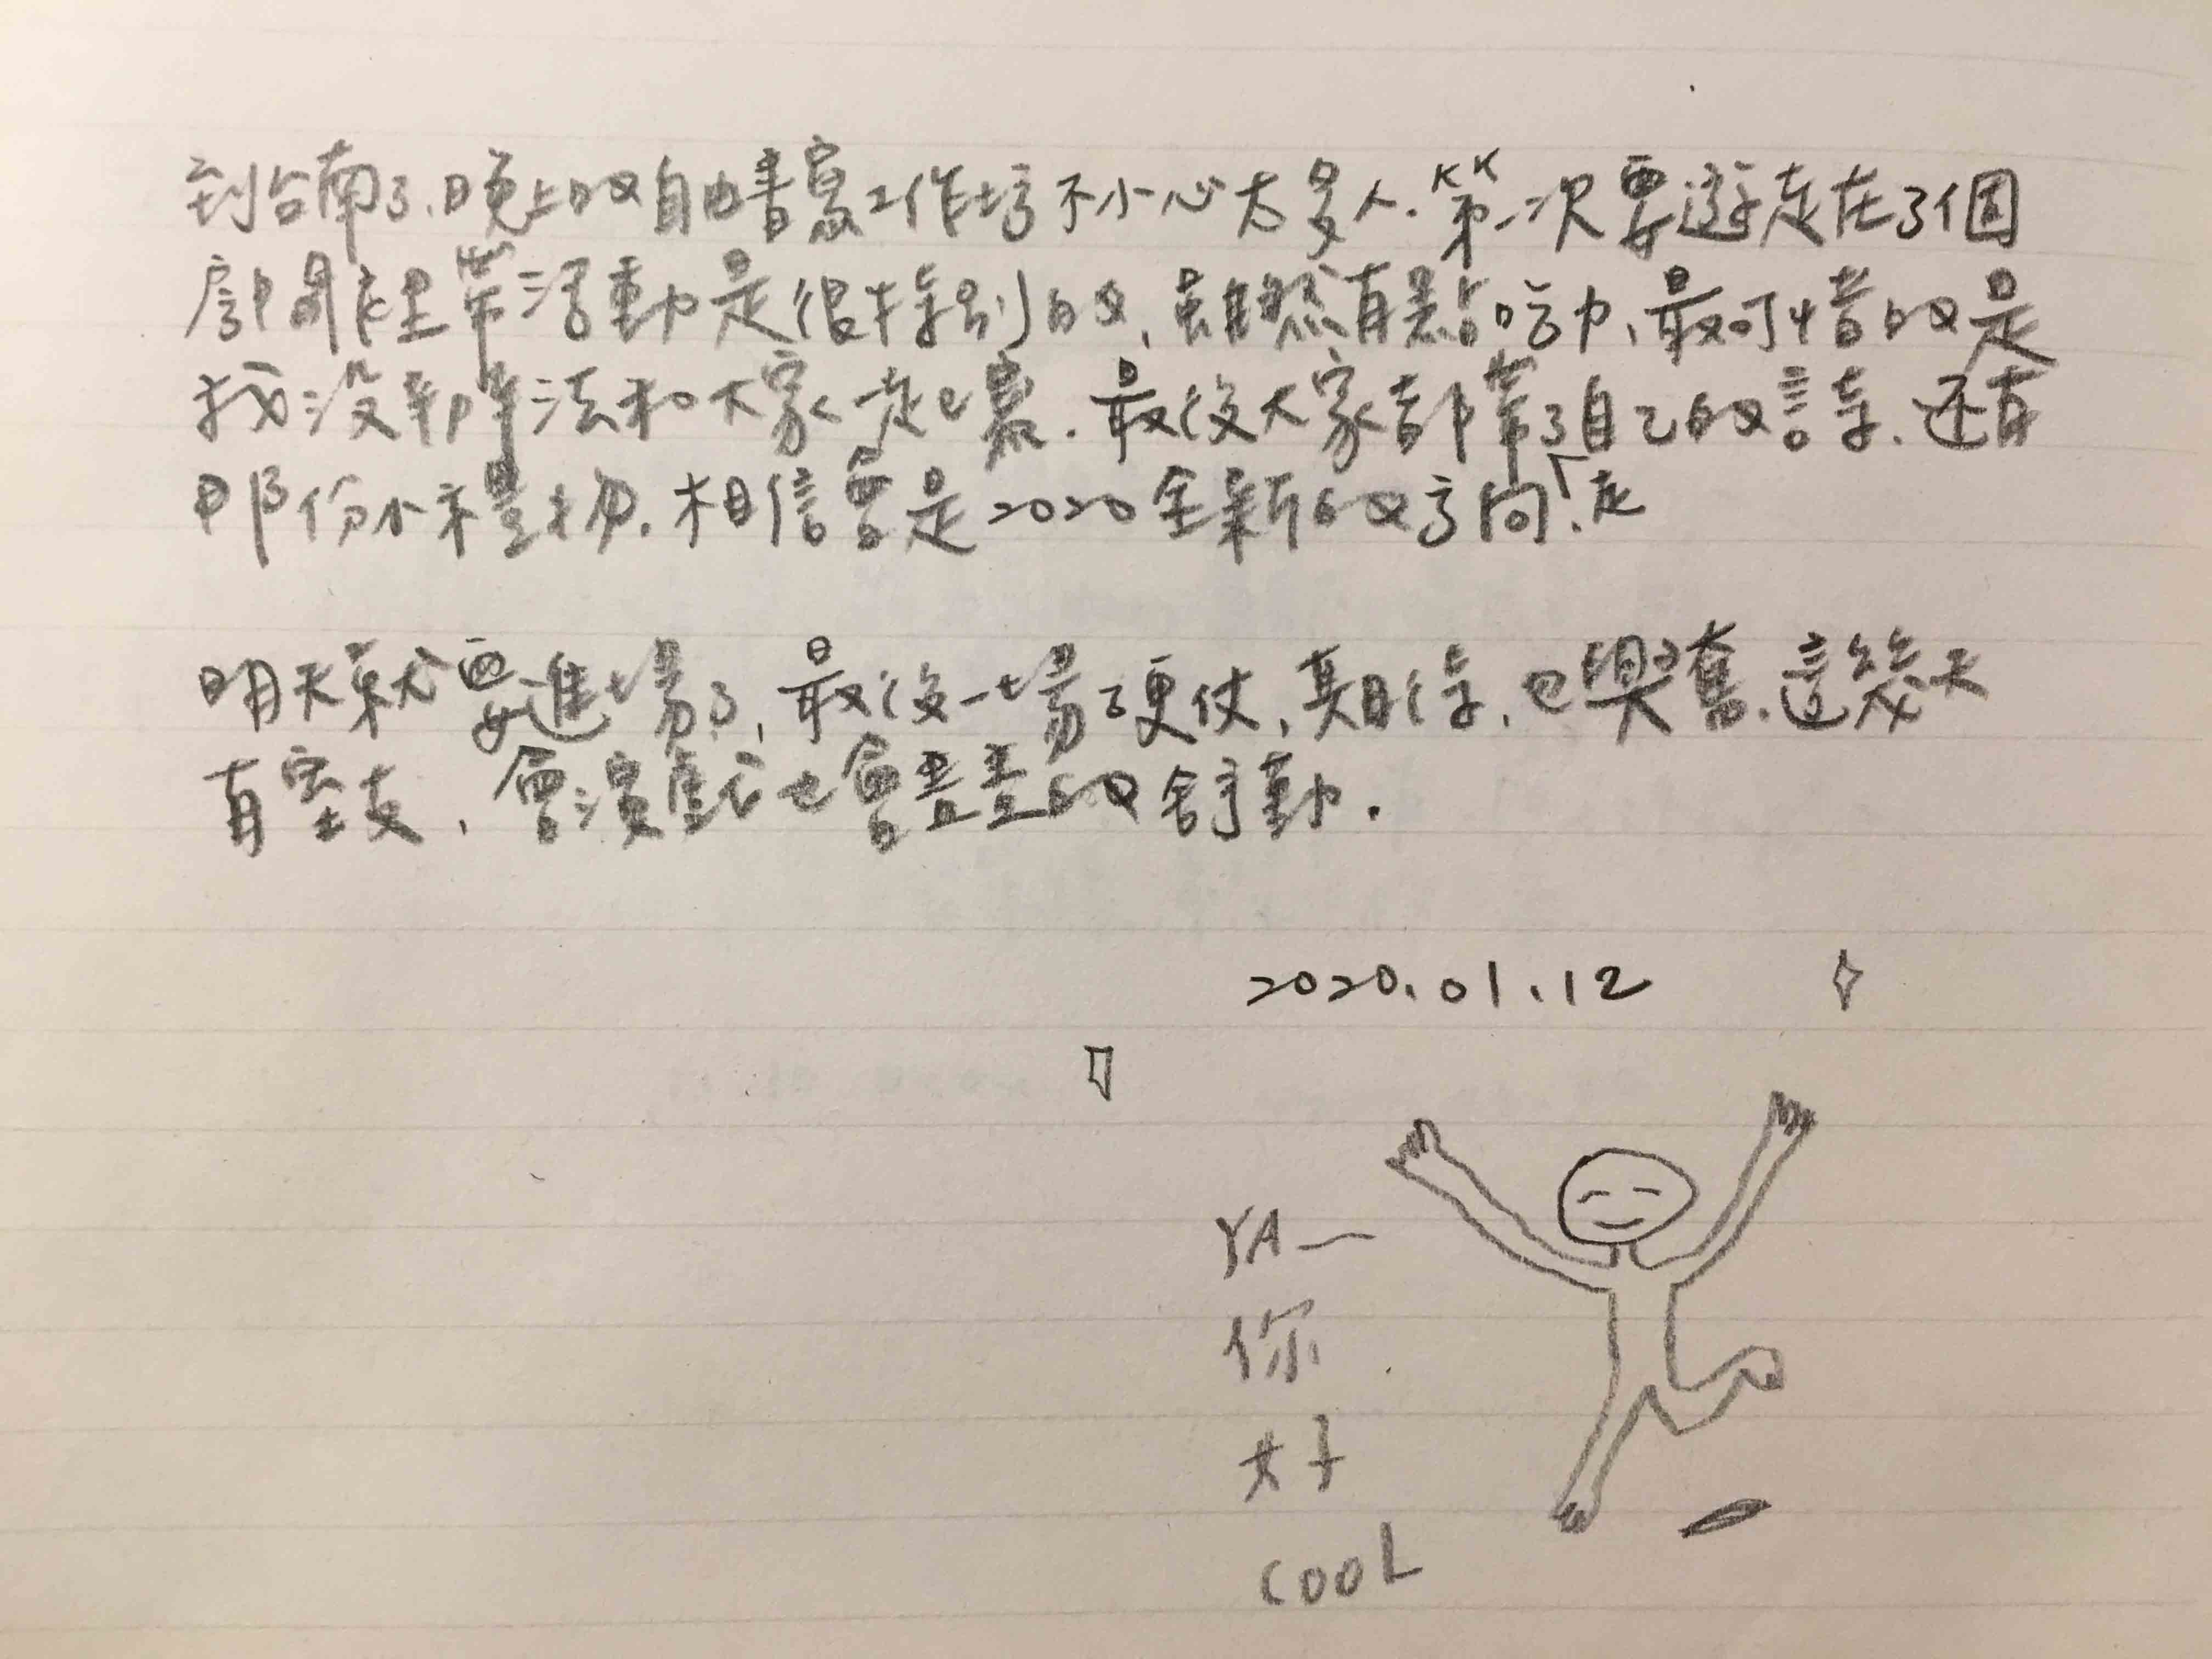 到台南了、晚上的自由書寫工作坊不小心太多人.第一次要遊走在3個
房間裡帶活動是很特別的、雖然有點吃力、最可惜的是
我沒辦法和大家一起寫.最後大家都帶了自己的詩、還有
那份小禮物.相信會是2020全新的方向、走
明天就要進場了、最後一場硬仗、期待、也興奮.這幾天
有空去、會演 也會 的舒 .
2020.01.12
YA一
你
好
COOL